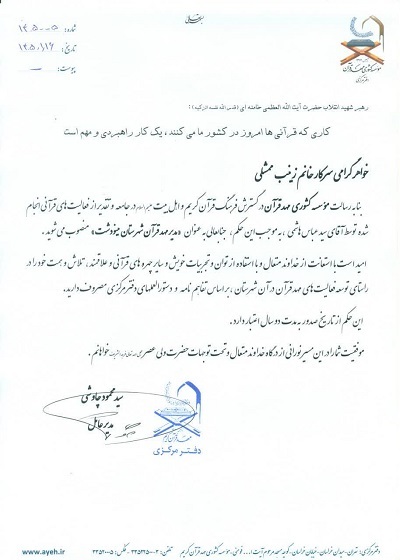 بسمه تعالی
شماره: ۱۴۰۵۰۰۵
تاریخ: ۱۴۰۵/۱/۱۶
پیوست:
موسسه کشوری مهد قرآن
دفتر مرکزی
رهبر شهید انقلاب حضرت آیت الله العظمی خامنه ای (قدس الله نفسه الزکیه):
کاری که قرآنی ها امروز در کشور ما می کنند، یک کار راهبردی و مهم است
خواهر گرامی سرکار خانم زینب مشلی
بنا به رسالت موسسه کشوری مهد قرآن در گسترش فرهنگ قرآن کریم و اهل بیت در جامعه و تقدیر از فعالیت های قرآنی انجام
شده توسط آقای سید عباس هاشمی، به موجب این حکم، جنابعالی به عنوان «مدیر مهد قرآن شهرستان مینودشت» منصوب می شوید.
امید است با استعانت از خداوند متعال و با استفاده از توان و تجربیات خویش و سایر چهره های قرآنی و علاقمند، تلاش و همت خود را در
راستای توسعه فعالیت های مهد قرآن در آن شهرستان، بر اساس تفاهم نامه و دستورالعملهای دفتر مرکزی مصروف دارید.
این حکم از تاریخ صدور به مدت دو سال اعتبار دارد.
موفقیت شما را در این مسیر نورانی از درگاه خداوند متعال و تحت توجهات حضرت ولی عصر خواهانم.
سید محمود چاوشی
مدیر عامل
مهد قرآن کریم
دفتر مرکزی
دفتر مرکزی: تهران - میدان خراسان - خیابان خراسان - کوچه مسجد مرحوم آیت ا... موسسه کشوری مهد قرآن کریم تلفن:
www.ayeh.ir